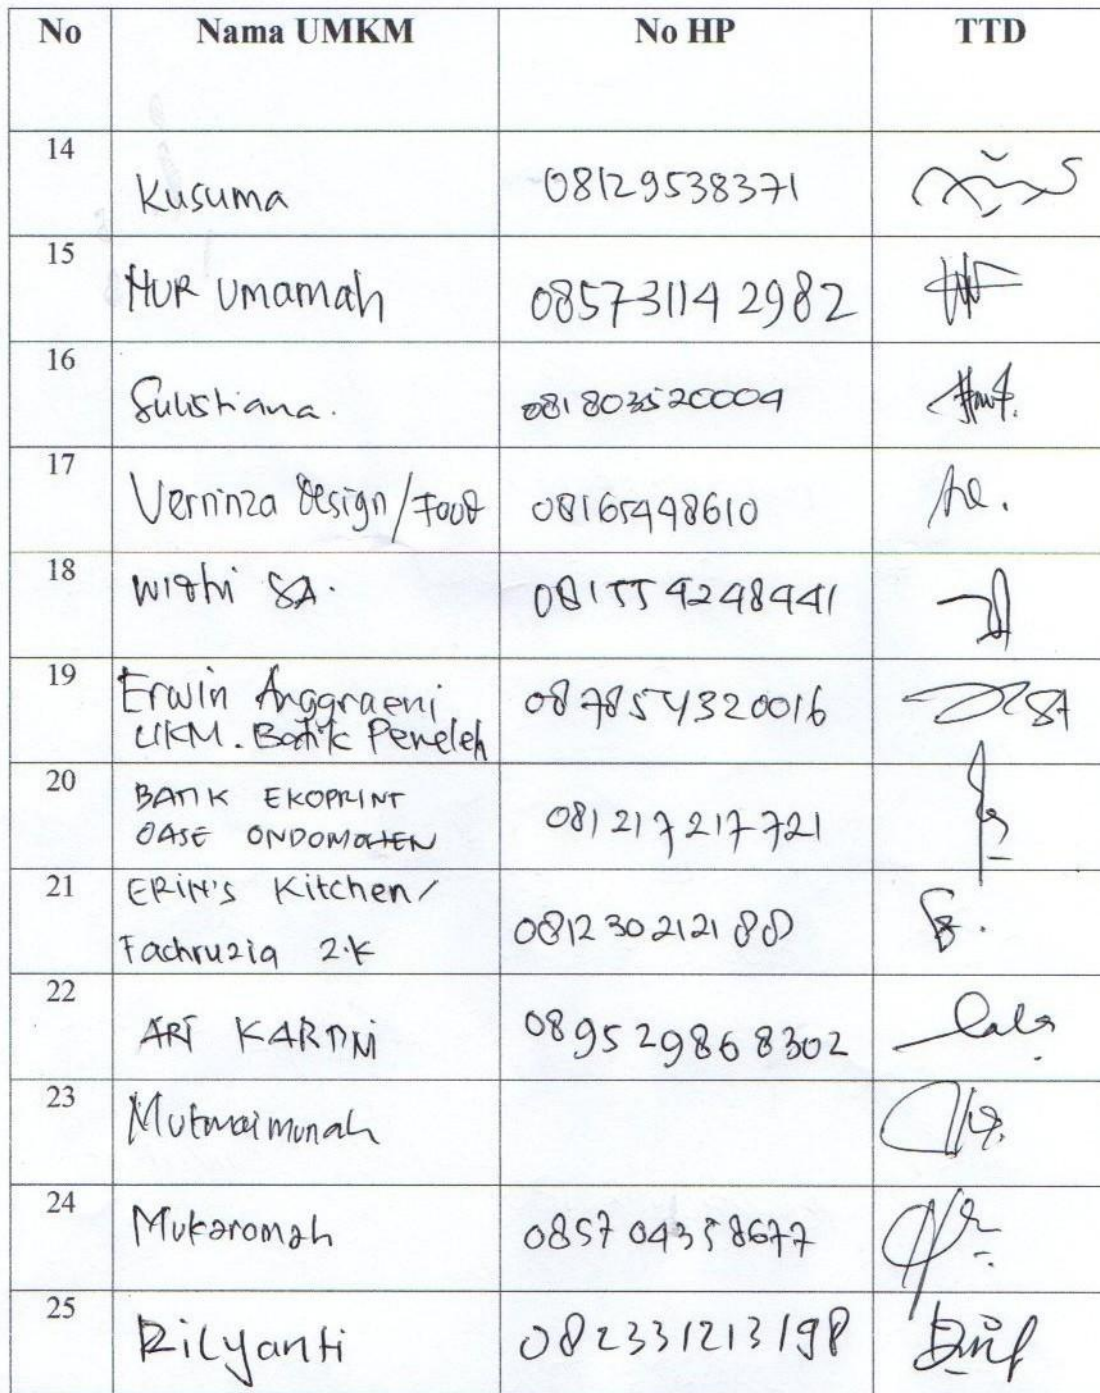 No Nama UMKM No HP TTD
14 Kusuma 08129538371
15 NUR Umamah 085731142982
16 Sulistiana. 081803520004
17 Verninza Design/Food 08165498610
18 Widhi SA. 081554248441
19 Erwin Anggraeni 087854320016
UKM. Batik Peneleh
20 BATIK EKOPRINT 081217217721
OASE ONDOMOHEN
21 ERIN'S Kitchen/
Fachruzia Z.K 081230212188
22 ARI KARTINI 089529868302
23 Mutmaimunah
24 Mukaromah 085704358677
25 Rilyanti 082331213198